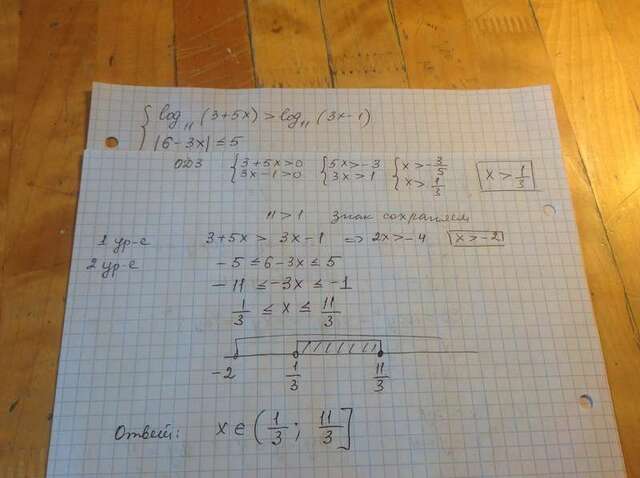 { log₁₁(3+5x) > log₁₁(3x-1)
|6-3x| ≤ 5
ОДЗ { 3+5x>0 { 5x>-3 { x>-3/5 x>1/3
3x-1>0 3x>1 x>1/3
11>1 знак сохраняем
1 ур-е 3+5x > 3x-1 => 2x>-4 x>-2
2 ур-е -5 ≤ 6-3x ≤ 5
-11 ≤ -3x ≤ -1
1/3 ≤ x ≤ 11/3
-2 1/3 11/3
Ответ: x ∈ (1/3; 11/3]